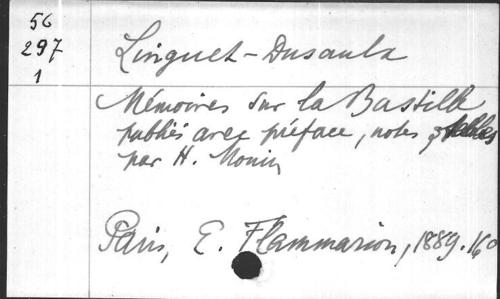 56
297
1
Linguet-Dusaulx
Mémoires sur la Bastille
publiés avec préface, notes & tables
par H. Monin
Paris, E. Flammarion, 1889. 16°